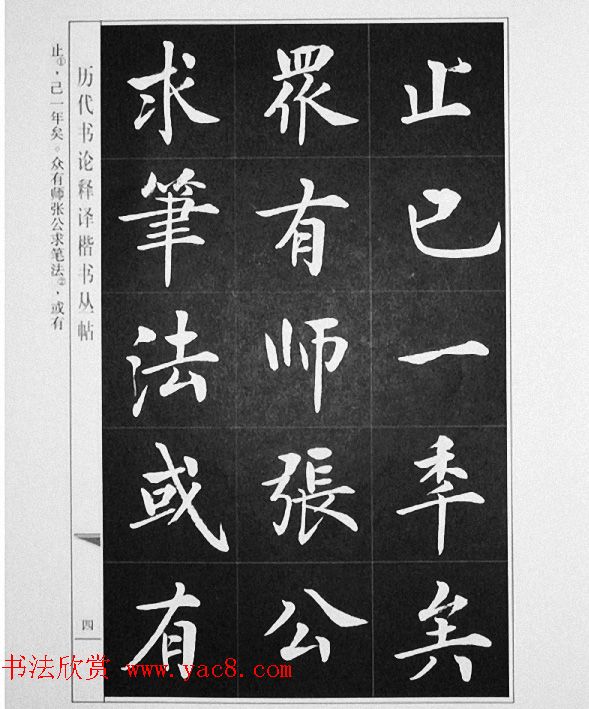 止已一秊矣
眾有师張公
求筆法或有
历代书论释译楷书丛帖
四
止①，己一年矣。众有师张公求笔法②，或有
书法欣赏 www.yac8.com